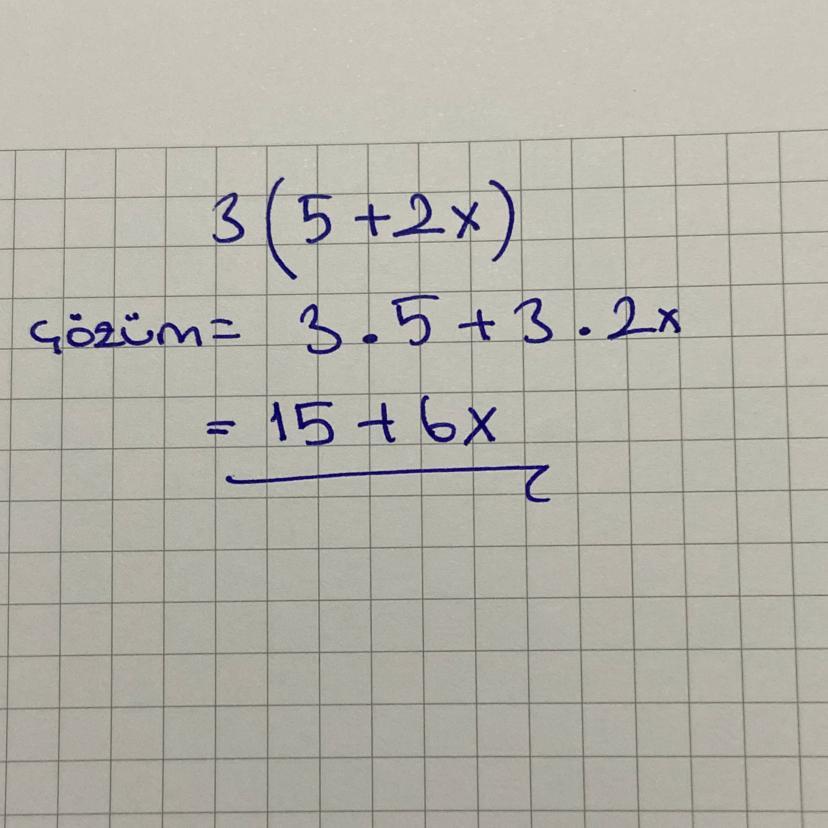 3(5+2x)
çözüm= 3.5+3.2x
= 15+6x